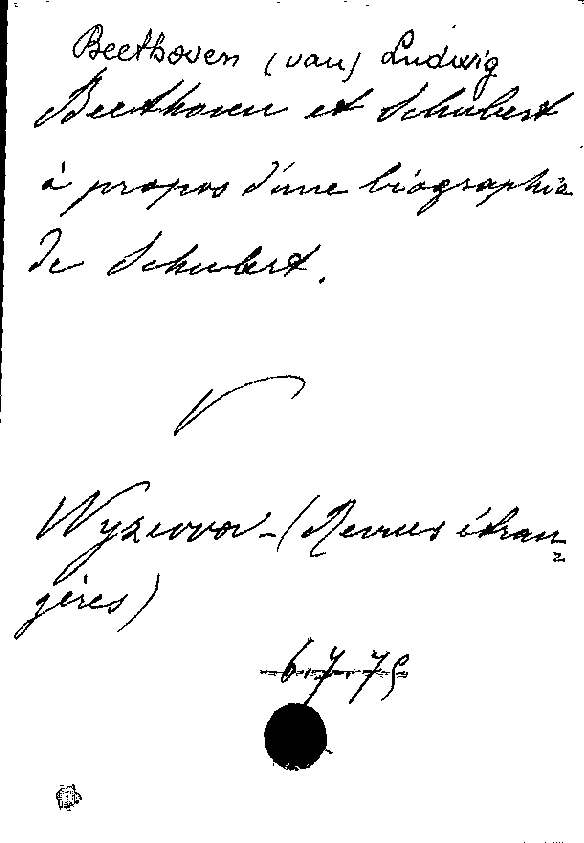 Beethoven (van) Ludwig
Beethoven et Schubert
à propos d'une biographie
de Schubert.
Wyzewa - (Revues étran=
gères)
6.7.75